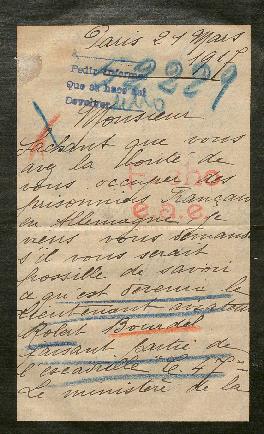 Paris 27 Mars
1917
52229
Pedir informes
Que se hace así
Devolver
Monsieur
Sachant que vous
avez la bonté de
vous occuper des
prisonniers Français
en Allemagne je
viens vous demander
s'il vous serait
possible de savoir
ce qu'est devenu le
lieutenant aviateur
Robert Bourdet
faisant partie de
l'escadrille C. 47 -
Le ministère de la